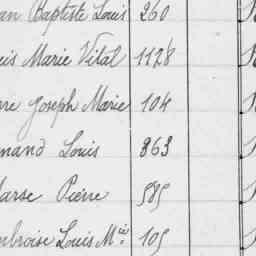 an Baptiste Louis 260
is Marie Vital 1128
re Joseph Marie 104
mand Louis 863
arse Pierre 585
mbroise Louis M.ie 105